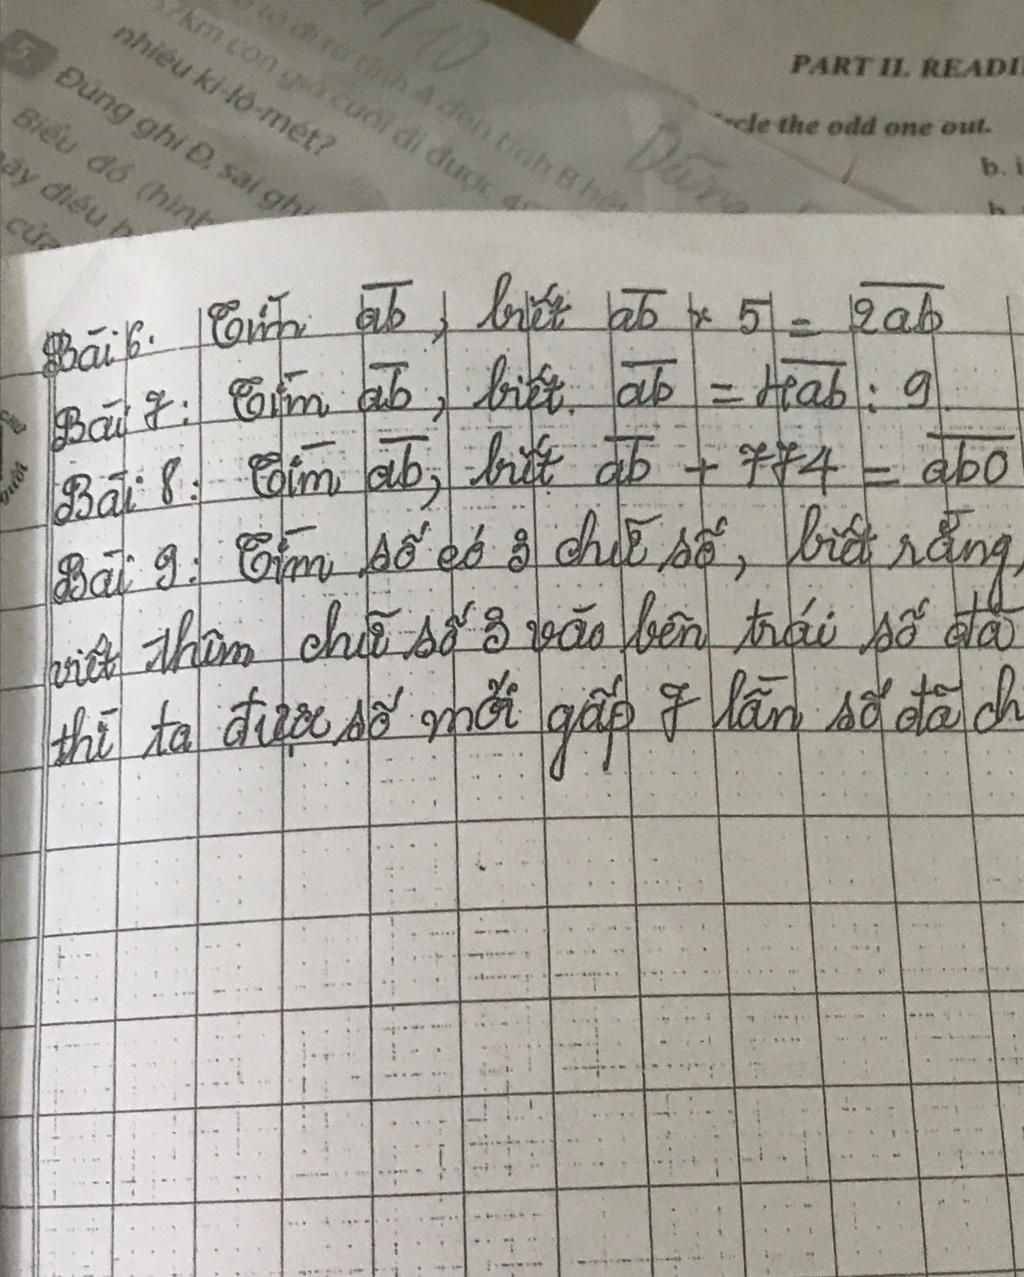 PART II. READI
rcle the odd one out.
b. i
7km còn giờ cuối đi được 4
nhiêu ki-lô-mét?
5 Đúng ghi Đ, sai ghi
Biểu đồ (hình
Bài 6. Tìm a̅b̅, biết a̅b̅ × 5 = 2̅a̅b̅
Bài 7: Tìm a̅b̅, biết a̅b̅ = 4̅a̅b̅ : 9
Bài 8: Tìm a̅b̅, biết a̅b̅ + 774 = a̅b̅0̅
Bài 9: Tìm số có 3 chữ số, biết rằng,
viết thêm chữ số 3 vào bên trái số đã
thì ta được số mới gấp 7 lần số đã ch